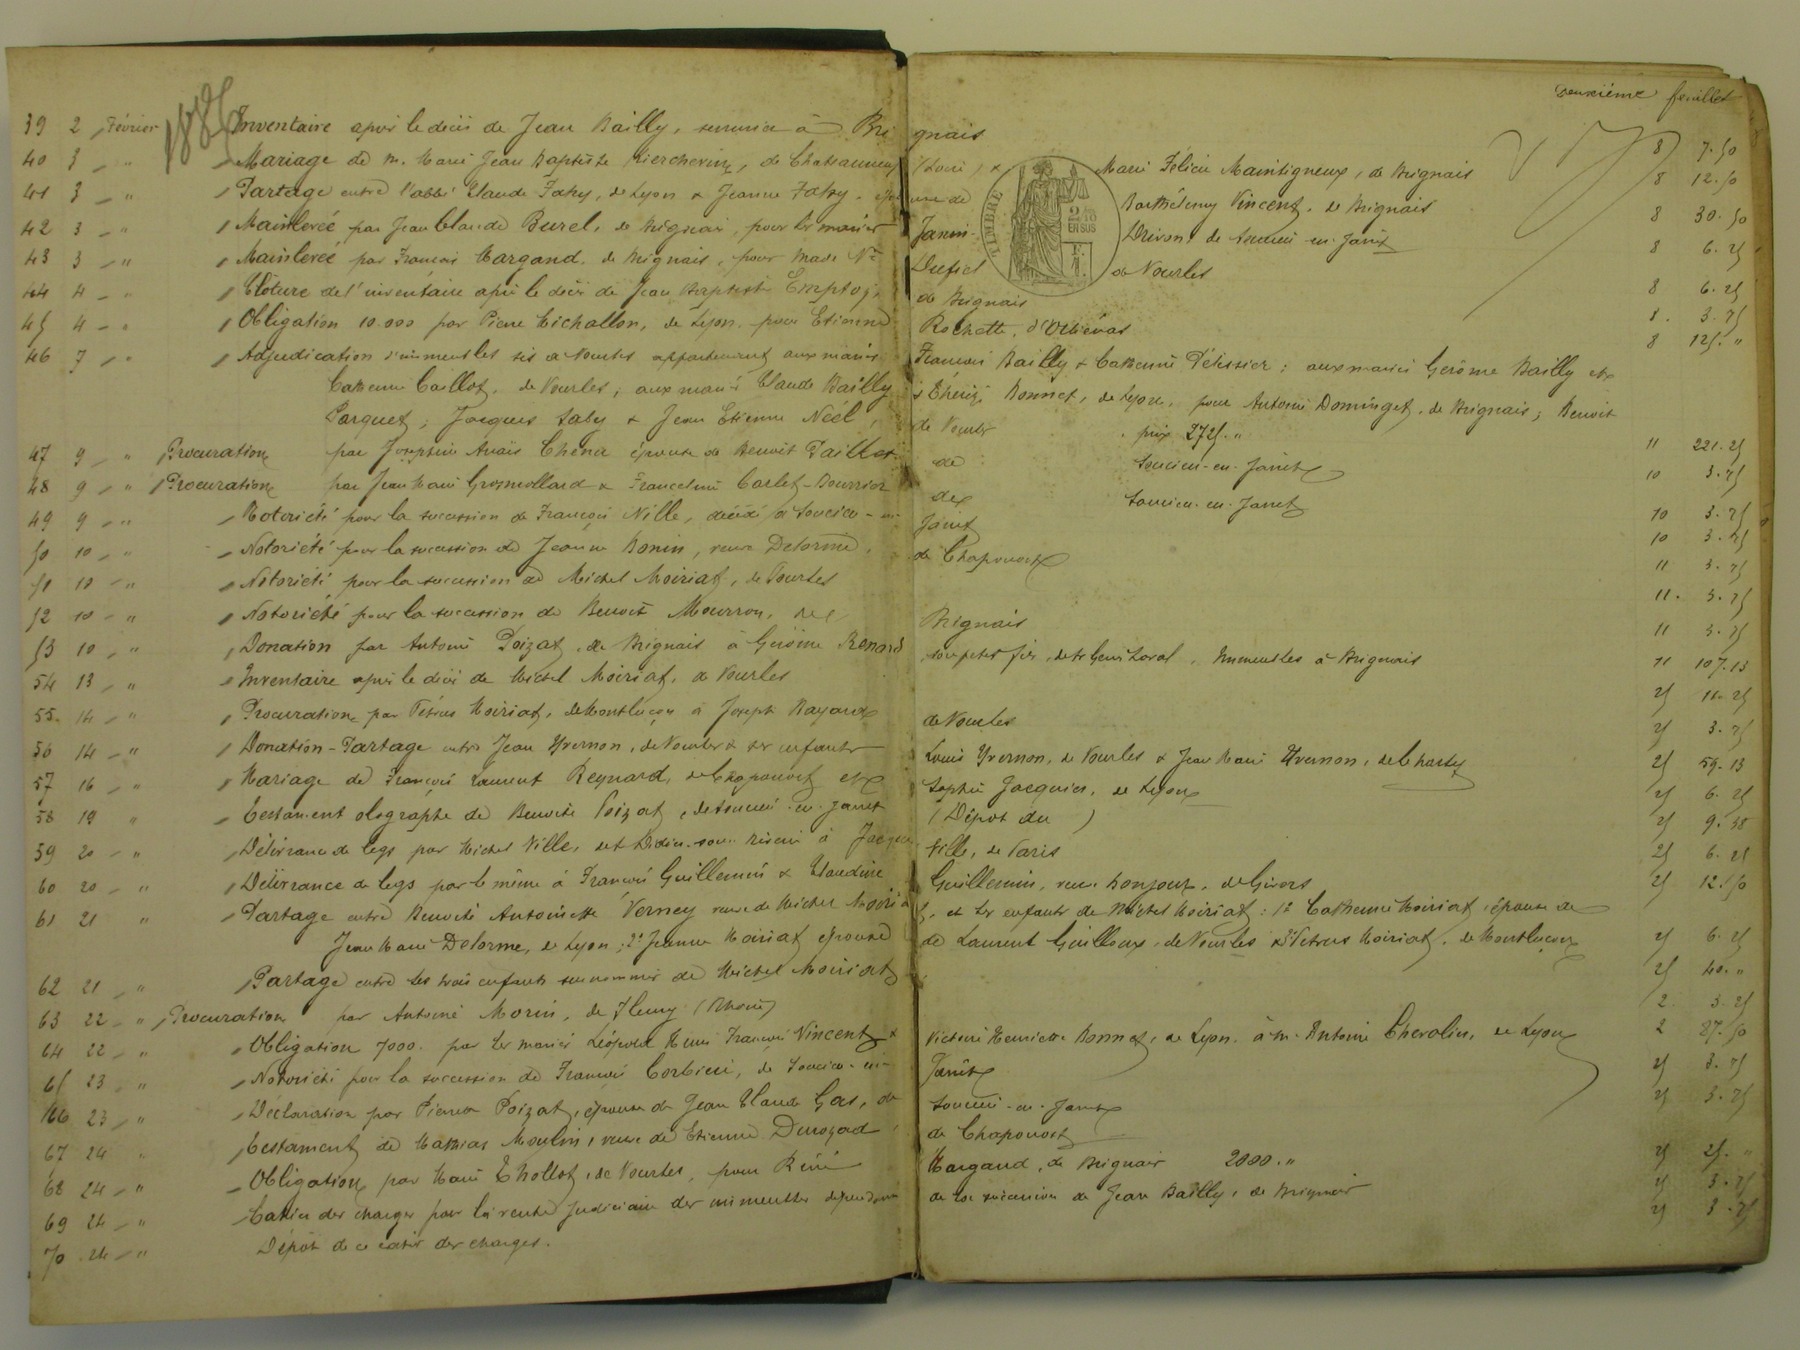 1885
Deuxième feuillet
39 2 Février Inventaire après le décès de Jean Bailly, survenu à Brignais 8 7.50
40 3 " Mariage de M. Marie Jean Baptiste de Chateauneuf (Loire) & Marie Félicie Maintigneux, de Brignais 8 12.50
41 3 " Partage entre l'abbé Claude Fahy, de Lyon & Jeanne Fahy, épouse de Barthélemy Vincent, de Brignais 8 30.50
42 3 " Mainlevée par Jean Claude Burel, de Brignais, pour les mariés Janin Drivon, de Soucieu-en-Jarret 8 6.25
43 3 " Mainlevée par François Margand, de Brignais, pour Made Ve Dufiel de Vourles 8 6.25
44 4 " Clôture de l'inventaire après le décès de Jean Baptiste Emptoz, de Brignais 8. 3.75
45 4 " Obligation 10.000 par Pierre Michallon, de Lyon, pour Etienne Rochette, d'Orliénas 8 125."
46 7 " Adjudication d'immeubles sis à Vourles appartenant aux mariés François Bailly & Catherine Pélissier ; aux mariés Gerôme Bailly et
Catherine Caillot, de Vourles ; aux mariés Claude Bailly & Thérèse Bonnet, de Lyon, pour Antoine Dominget, de Brignais ; Benoit
Parquet ; Jacques Saby & Jean Etienne Néel, de Vourles . prix 2725." 11 221.25
47 9 " Procuration par Joséphine Anaïs Chéna épouse de Benoit Paillet de Soucieu-en-Jarret 10 3.75
48 9 " Procuration par Jean Marie Grosmollard & Franceline Carlet-Bourrier de Soucieu-en-Jarret 10 3.75
49 9 " Notoriété pour la succession de François Nille, décédé à Soucieu-en-Jarret 10 3.75
50 10 " Notoriété pour la succession de Jeanne Bonin, veuve Delorme, de Chaponost 11 3.75
51 10 " Notoriété pour la succession de Michel Moiriat, de Vourles 11. 3.75
52 10 " Notoriété pour la succession de Benoit Mourron, de Brignais 11 3.75
53 10 " Donation par Antoine Poizat, de Brignais à Gerôme Renard son petit fils, de St Genis Laval, Immeubles à Brignais 11 107.13
54 13 " Inventaire après le décès de Michel Moiriat, de Vourles 25 11.25
55 14 " Procuration par Pétrus Moiriat, de Montluçon à Joseph Bayard de Vourles 25 3.75
56 14 " Donation-Partage entre Jean Yvernon, de Vourles & ses enfants Louis Yvernon, de Vourles & Jean Marie Yvernon, de Charly 25 59.13
57 16 " Mariage de François Laurent Reynard, de Chaponost et Sophie Jacquier, de Lyon 25 6.25
58 19 " Testament olographe de Benoite Poizat, de Soucieu-en-Jarret (Dépot du ) 25 9.38
59 20 " Délivrance de legs par Michel Ville, de St Didier-sous-Riverie à Jacques Ville, de Paris 25 6.25
60 20 " Délivrance de legs par le même à François Guillemin & Claudine Guillemin, veuve Bonjour, de Givors 25 12.50
61 21 " Partage entre Benoite Antoinette Verney veuve de Michel Moiriat, et les enfants de Michel Moiriat : 1° Catherine Moiriat épouse de
Jean Marie Delorme, de Lyon ; 2° Jeanne Moiriat épouse de Laurent Guilloux, de Vourles & 3° Pétrus Moiriat, de Montluçon 25 6.25
62 21 " Partage entre les trois enfants sus nommés de Michel Moiriat 25 40."
63 22 " Procuration par Antoine Morin, de Fleury (Rhône) 2 3.25
64 22 " Obligation 7000. par les mariés Léopold Henri François Vincent & Victorine Henriette Bonnet, de Lyon, à M. Antoine Chevalier, de Lyon 2 87.50
65 23 " Notoriété pour la succession de François Corbière, de Soucieu-en-Jarret 25 3.75
66 23 " Déclaration par Pierrette Poizat, épouse de Jean Claude Gas, de Soucieu-en-Jarret 25 3.75
67 24 " Testament de Mathias Moulin, veuve de Etienne Durozad, de Chaponost
68 24 " Obligation par Marie Thollot, de Vourles, pour Réné Margand, de Brignais 2000." 25 25."
69 24 " Cahier des charges pour la vente judiciaire des immeubles dépendant de la succession de Jean Bailly, de Brignais 25 3.75
70 24 " Dépôt de ce cahier des charges. 25 3.75
TIMBRE
2/10
EN SUS
F.